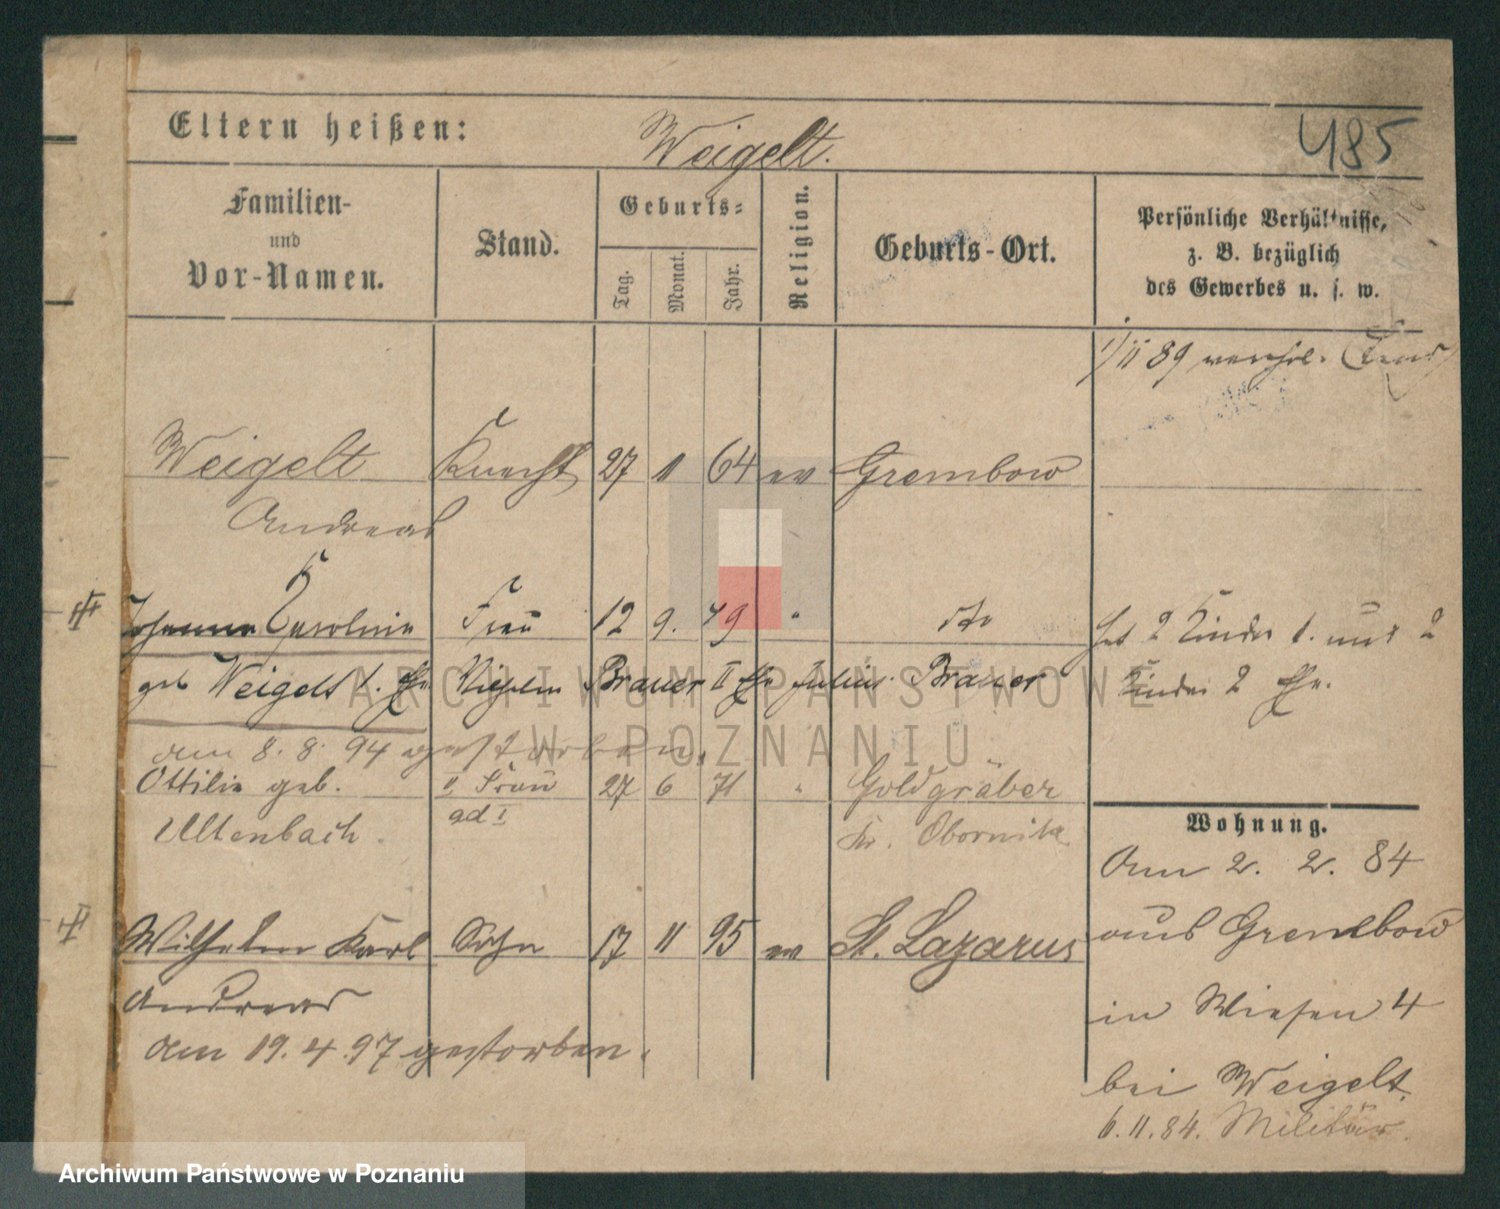 Eltern heißen: Weigelt.
485
Familien-
und
Vor-Namen.
Stand.
Geburts-
Tag.
Monat.
Jahr.
Religion.
Geburts-Ort.
Persönliche Verhältnisse,
z. B. bezüglich
des Gewerbes u. s. w.
1/11 89
Weigelt Knecht 27 11 64 ev Grembow
Andreas
Johanna Caroline Frau 12 9. 79 " dto
geb Weigelt 1. Ehe Wilhelm Brauer II Ehe Julius Brauer
hat 2 Kinder 1. und 2
Kinder 2 Ehe.
am 8. 8. 94 gestorben.
Ottilie geb. II Frau 27 6 71 " Goldgräber
Altenbach. ad I Kr. Obornik
Wilhelm Karl Sohn 17 11 95 ev St. Lazarus
Andreas
am 19. 4. 97 gestorben.
Wohnung.
Am 2. 2. 84
aus Grembow
in Wiesen 4
bei Weigelt.
6. 11. 84. Militär.
ARCHIWUM PAŃSTWOWE
W POZNANIU
Archiwum Państwowe w Poznaniu